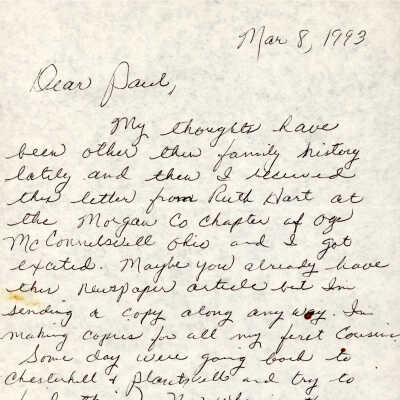 Mar 8, 1993
Dear Paul,
My thoughts have
been other then family history
lately and then I received
this letter from Ruth Hart at
the Morgan Co Chapter of Ogs
McConnelsvill Ohio and I got
excited. Maybe you already have
this newspaper article but Im
sending a copy along any way. Im
making copies for all my first Cousins
Some day were going back to
Chesterhill & Plantsvill and try to